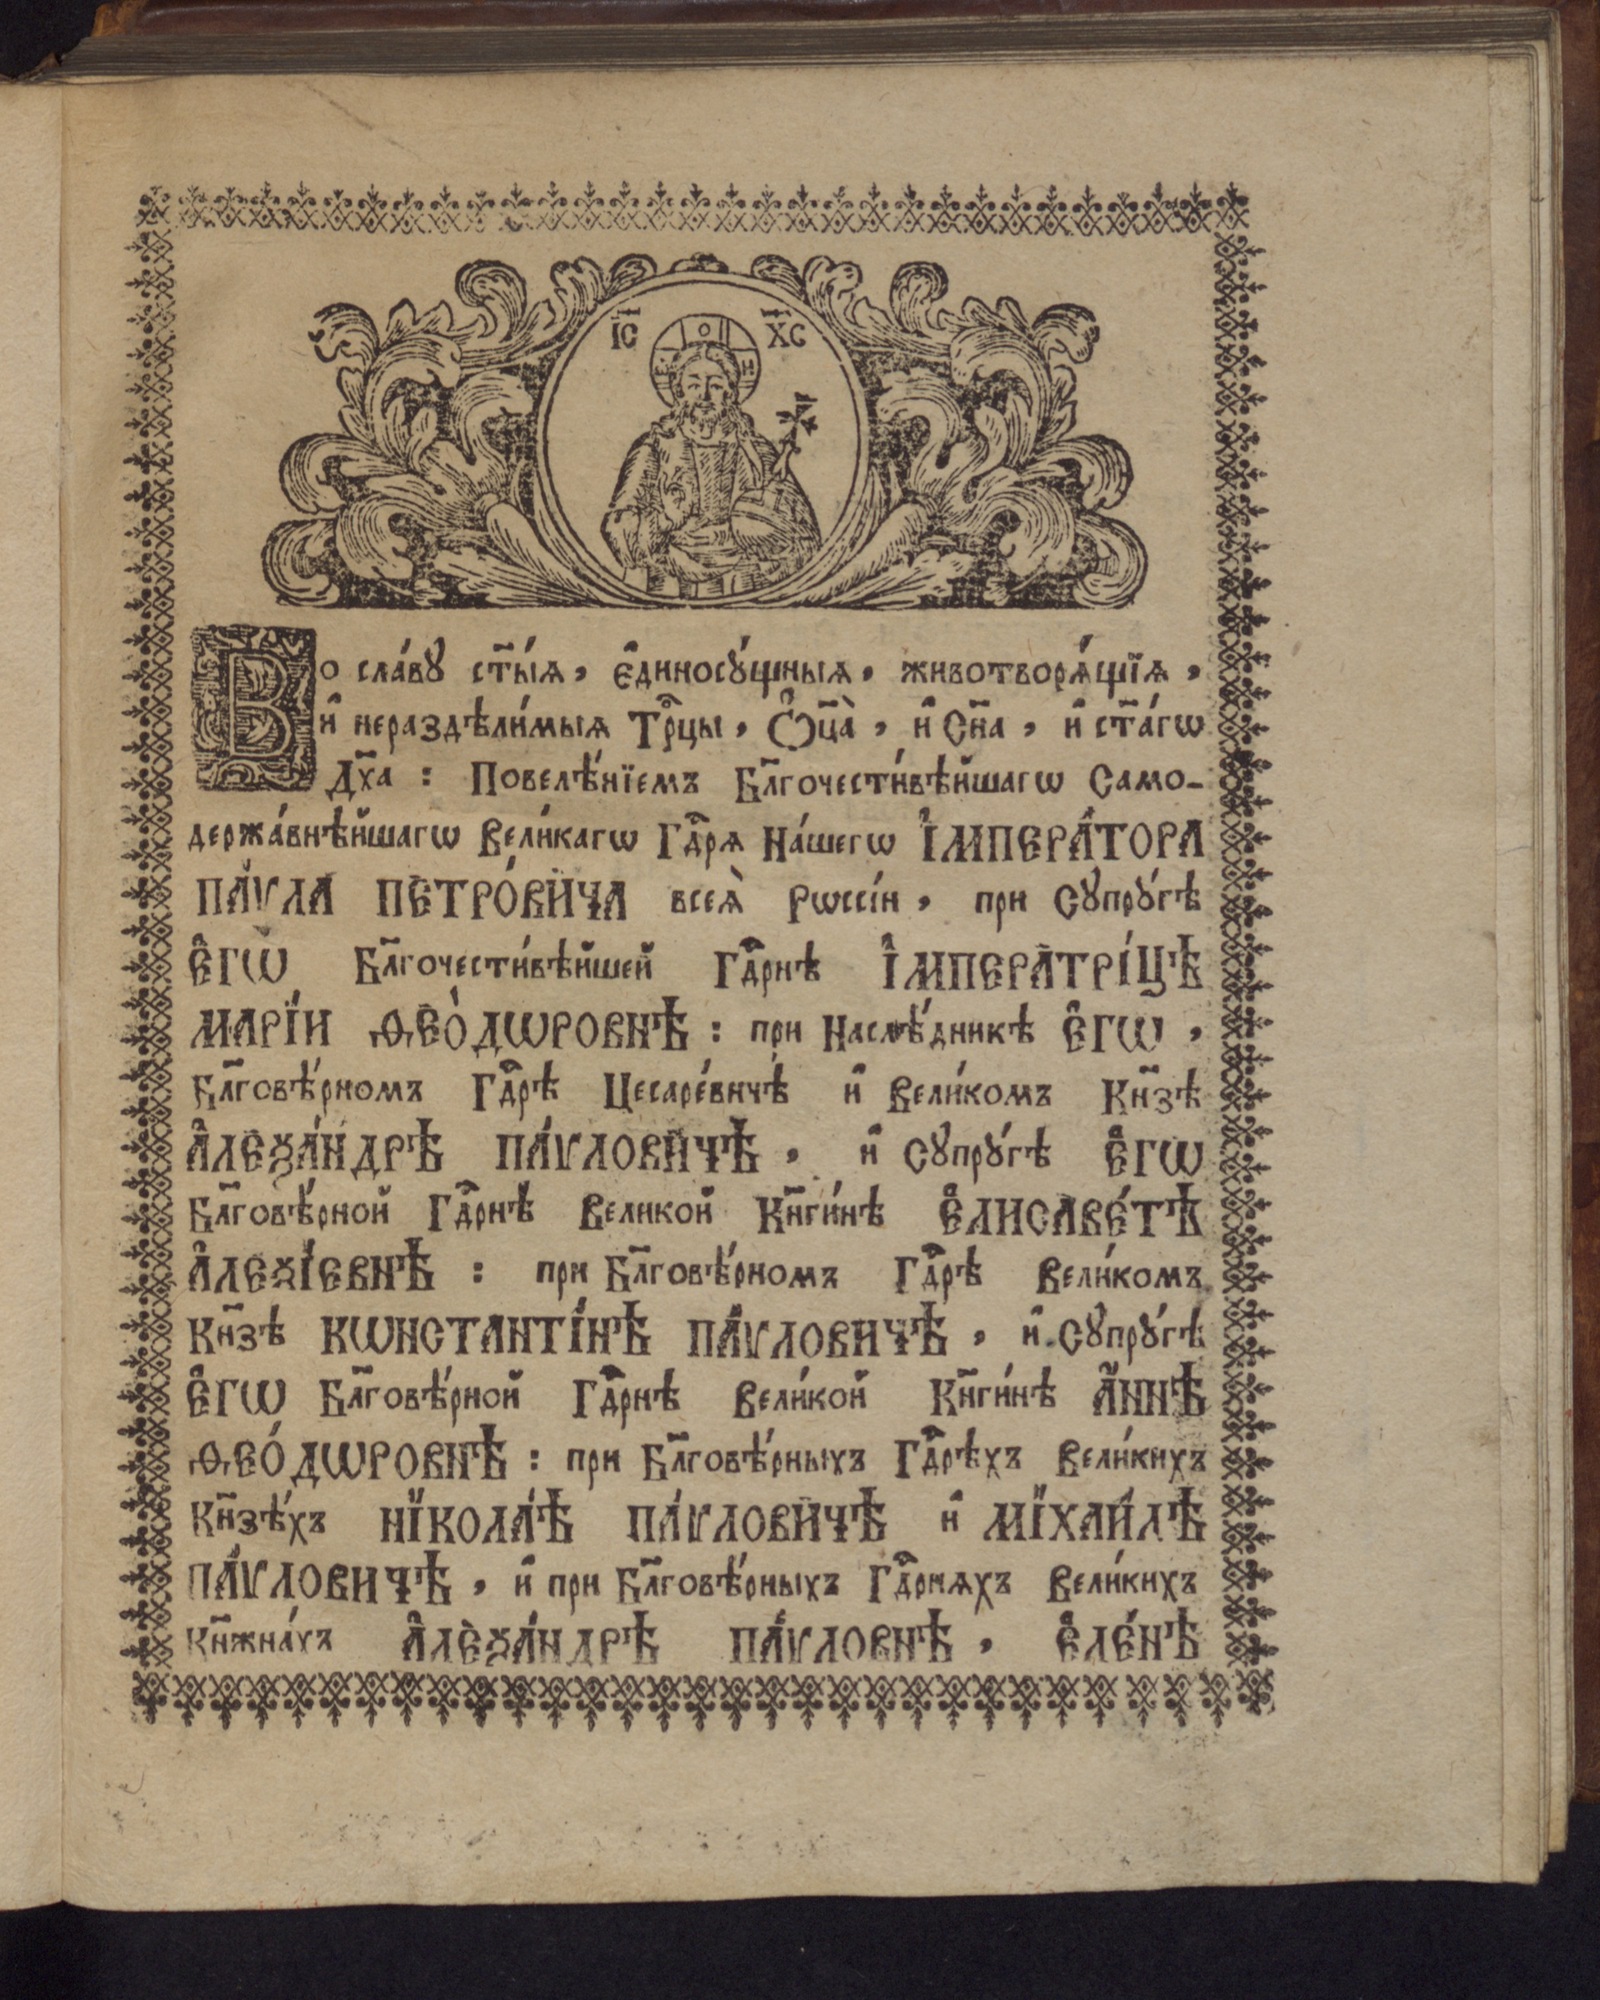 І҃С Х҃С
Во сла́вꙋ ст҃ы́ѧ, є҆диносꙋ́щныѧ, животворѧ́щїѧ,
и҆ нераздѣли́мыѧ Трⷪ҇цы, Ѻ҆ц҃а̀, и҆ Сн҃а, и҆ ст҃а́гѡ
Дх҃а : Повелѣ́нїемъ Бл҃гочести́вѣйшагѡ Само-
держа́внѣйшагѡ Вели́кагѡ Гдⷭ҇рѧ На́шегѡ І҆МПЕРА́ТОРА
ПА́ѴЛА ПЕТРО́ВИЧА всеѧ̀ Рѡссі́и, при Сꙋпрꙋ́гѣ
Є҆ГѠ̀ Бл҃гочести́вѣйшей Гдⷭ҇рнѣ І҆МПЕРАТРІ́ЦѢ
МАРІ́И ѲЕО́ДѠРОВНѢ : при Наслѣ́дникѣ Є҆ГѠ̀,
Бл҃говѣ́рномъ Гдⷭ҇рѣ Цесаре́вичѣ и҆ Вели́комъ Кн҃зѣ
А҆ЛЕѮА́НДРѢ ПА́ѴЛОВИЧѢ, и҆ Сꙋпрꙋ́гѣ Є҆ГѠ̀
Бл҃говѣ́рной Гдⷭ҇рнѣ Великой Кн҃ги́нѣ Є҆ЛИСАВЕ́ТѢ
А҆ЛЕѮІ́ЕВНѢ : при Бл҃говѣ́рномъ Гдⷭ҇рѣ Вели́комъ
Кн҃зѣ КѠНСТАНТІ́НѢ ПА́ѴЛОВИЧѢ, и҆ Сꙋпрꙋ́гѣ
Є҆ГѠ̀ Бл҃говѣ́рной Гдⷭ҇рнѣ Вели́кой Кн҃ги́нѣ А҆́ННѢ
ѲЕО́ДѠРОВНѢ : при Бл҃говѣ́рныхъ Гдⷭ҇рѣхъ Вели́кихъ
Кн҃зѣ́хъ НІКОЛА́Ѣ ПА́ѴЛОВИЧѢ и҆ МІХАИ́ЛѢ
ПА́ѴЛОВИЧѢ, и҆ при Бл҃говѣ́рныхъ Гдⷭ҇рнѧхъ Вели́кихъ
Кн҃жна́хъ А҆ЛЕѮА́НДРѢ ПА́ѴЛОВНѢ, Є҆ЛЕ́НѢ